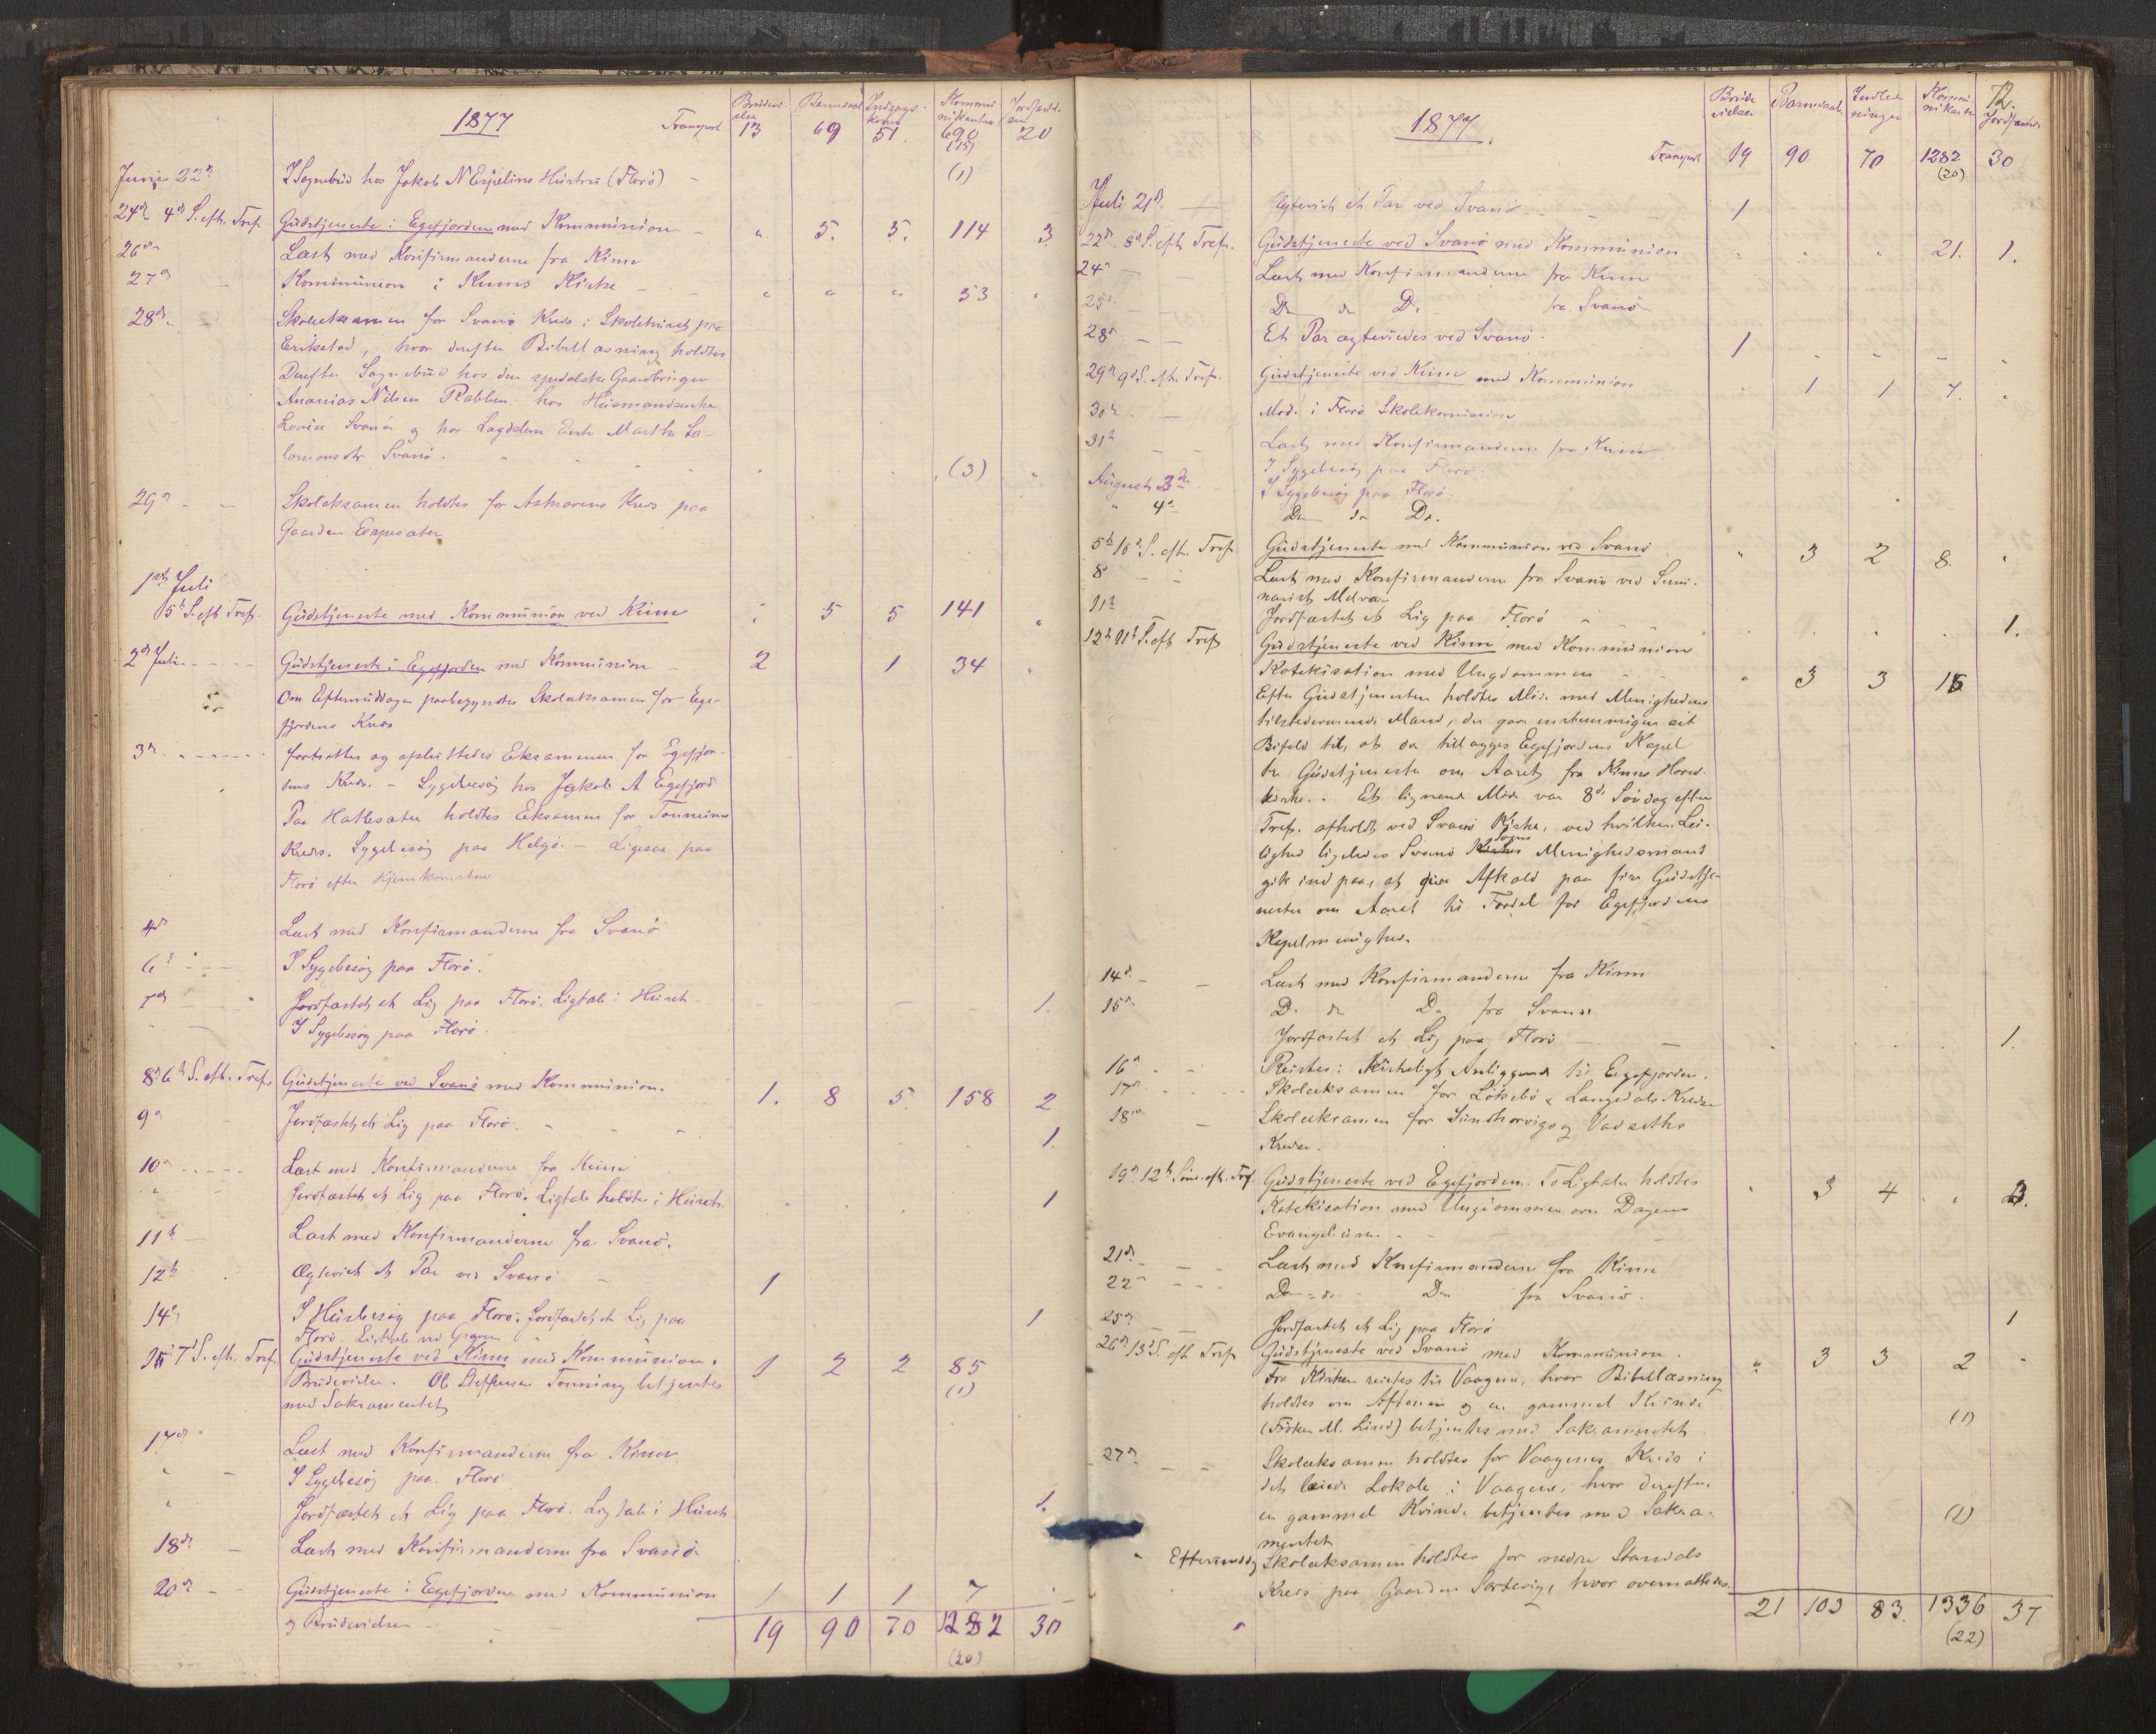 1877
Brudevi- Barnedaab Indgangs- Kommu- Jordfæstel-
else kone nikanter ser
Transport 13 69 51. 690 20
(15)
Junie 22de I Sognebud hos Jakob N Espelins Hustru (Florö) (1)
24de 4de S. eft. Tref. Gudstjeneste i Egefjorden med Kommunion " 5. 5. 114 3
26de Læst med Konfirmanderne fra Kinn
27de Kommunion i Kinns Kirke " " " 53 "
28de Skoleeksamen for Svanö Kreds i Skolehuset paa
Erikstad, hvor derefter Bibellæsning holdtes
Derefter Sognebud hos den spedalske Gaardbruger
Ananias Nilsen Rabben hos Husmandsenke
Lovise Svanö og hos Lægdslem Enke Marthe Sa-
lomonsdtr Svanö. (3)
29de Skoleeksamen holdtes for Askvarens Kreds paa
Gaarden
1ste Juli
5te S. eft Tref. Gudstjeneste med Kommunion ved Kinn " 5 5 141 "
2den Juli Gudstjeneste i Egefjorden med Kommunion 2 1 34 "
Om Eftermiddagen paabegyndtes Skoleeksamen for Ege-
fjordens Kreds
3die fortsattes og afsluttedes Eksamenen for Egefjor-
dens Kreds. - Sygebesög hos Jakob A Egefjord
Paa Hatlesæter holdtes Eksamen for
Kreds. Sygebesög paa Helgö. - Ligesaa paa
Florö efter Hjemkomsten
4de Læst med Konfirmanderne fra Svanö
6te I Sygebesög paa Florö.
7de Jordfæstet et Lig paa Florö. Ligtale i Huset 1.
" I Sygebesög paa Florö.
8de 6te S. eft. Tref. Gudstjeneste ved Svanö med Kommunion. 1. 8 5. 158 2
9de Jordfæstet et Lig paa Florö. 1.
10de Læst med Konfirmanderne fra Kinn
" Jordfæstet et Lig paa Florö. Ligtale holdtes i Huset 1
11te Læst med Konfirmanderne fra Svanö.
12te Ægteviet et Par ved Svanö 1
14de I Husbesög paa Florö. Jordfæstet et Lig paa 1
Florö. Ligtale ved Graven
15de 7de S. eft. Tref. Gudstjeneste ved Kinn med Kommunion. 1 2 2 85
Brudevielse. Ole Steffensen Tonning betjentes (1)
med Sakramentet
17de Læst med Konfirmanderne fra Kinn
" I Sygebesög paa Florö
" Jordfæstet et Lig paa Florö. Ligtale i Huset 1.
18de Læst med Konfirmanderne fra Svanö
20de Gudstjeneste i Egefjorden med Kommunion 1 1 1 7
og Brudevielse
19 90 70 1282 30
(20)
72.
1877.
Brude Barnedaab Indled Kommu- Jordfæstelser
vielser ninger nikanter
Transport 19 90 70 1282 30
(20)
Juli 21de Ægteviet et Par ved Svanö 1
22de 8de S. eft. Tref. Gudstjeneste ved Svanö med Kommunion " " " 21. 1.
24de Læst med Konfirmanderne fra Kinn
25de Do do Do. fra Svanö
28de Et Par ægteviedes ved Svanö 1
29de 9de S. eft. Tref. Gudstjeneste ved Kinn med Kommunion 1 1 7.
30te Möde i Florö Skolekommission
31te Læst med Konfirmanderne fra Kinn
I Sygebesög paa Florö
August 3die I Sygebesög paa Florö
" 4de Do do Do.
5te 10de S. eft. Tref. Gudstjeneste med Kommunion ved Svanö " 3 2 8. "
8de Læst med Konfirmanderne fra Svanö ved Semi-
narist
11te Jordfæstet et Lig paa Florö 1.
12te 11te S. eft Tref Gudstjeneste ved Kinn med Kommunion
Katekisation med Ungdommen " 3 3 15
Efter Gudstjenesten holdtes Möde med Menighedens
tilstedeværende Mænd, der gave enstemmigen sit
Bifald til, at der tillægges Egefjordens Kapel
tre Gudstjenester om Aaret fra Kinns Hoved-
kirke. Et lignende Möde var 8de Söndag efter
Tref. afholdt ved Svanö Kirke, ved hvilken Lei-
lighed ligeledes Svanö Sogns Menighedsmænd
gik ind paa, at give Afkald paa fire Gudstje-
nester om Aaret til Fordel for Egefjordens
Kapelmenighed.
14de Læst med Konfirmanderne fra Kinn
15de Do do Do fra Svanö
Jordfæstet et Lig paa Florö 1.
16de Reistes i Kirkeligt Anliggende til Egefjorden.
17de Skoleeksamen for Löksebö & Langedals Kredse
18de Skoleeksamen for og
Kredse.
19de 12te Sönd. eft. Tref Gudstjeneste ved Egefjorden. To Ligtaler holdtes " 3 4 " 3.
Katekisation med Ungdommen over Dagens
Evangelium.
21de Læst med Konfirmanderne fra Kinn
22de Do do Do fra Svanö.
25de Jordfæstet et Lig paa Florö 1
26de 13de S. eft Tref Gudstjeneste ved Svanö med Kommunion. " 3 3 2
Fra Kirken reistes til Vaagene, hvor Bibellæsning
holdtes om Aftenen og en gammel Kvinde
(Fröken M. Lind) betjentes med Sakramentet (1)
27de Skoleeksamen holdtes for Vaagenes Kreds i
det leiede Lokale i Vaagene, hvor derefter
en gammel Kvinde betjentes med Sakra- (1)
mentet
" Eftermiddag Skoleeksamen holdtes for nedre Standals
Kreds paa Gaarden hvor overnattedes.
21 103 83. 1336 37
(22)